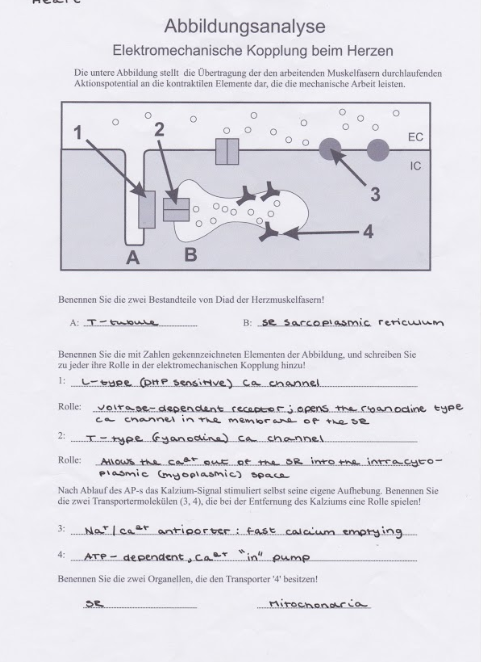 Heart
Abbildungsanalyse
Elektromechanische Kopplung beim Herzen
Die untere Abbildung stellt die Übertragung der den arbeitenden Muskelfasern durchlaufenden
Aktionspotential an die kontraktilen Elemente dar, die die mechanische Arbeit leisten.
1
2
EC
IC
3
4
A
B
Benennen Sie die zwei Bestandteile von Diad der Herzmuskelfasern!
A: T-tubule B: SR sarcoplasmic reticulum
Benennen Sie die mit Zahlen gekennzeichneten Elementen der Abbildung, und schreiben Sie
zu jeder ihre Rolle in der elektromechanischen Kopplung hinzu!
1: L-type (DHP sensitive) Ca channel
Rolle: voltage-dependent receptor; opens the ryanodine type
Ca channel in the membrane of the SR
2: T-type (ryanodine) Ca channel
Rolle: Allows the Ca2+ out of the SR into the intracyto-
plasmic (myoplasmic) space
Nach Ablauf des AP-s das Kalzium-Signal stimuliert selbst seine eigene Aufhebung. Benennen Sie
die zwei Transportermolekülen (3, 4), die bei der Entfernung des Kalziums eine Rolle spielen!
3: Na+/Ca2+ antiporter: fast calcium emptying
4: ATP-dependent, Ca2+ "in" pump
Benennen Sie die zwei Organellen, die den Transporter '4' besitzen!
SR Mitochondria